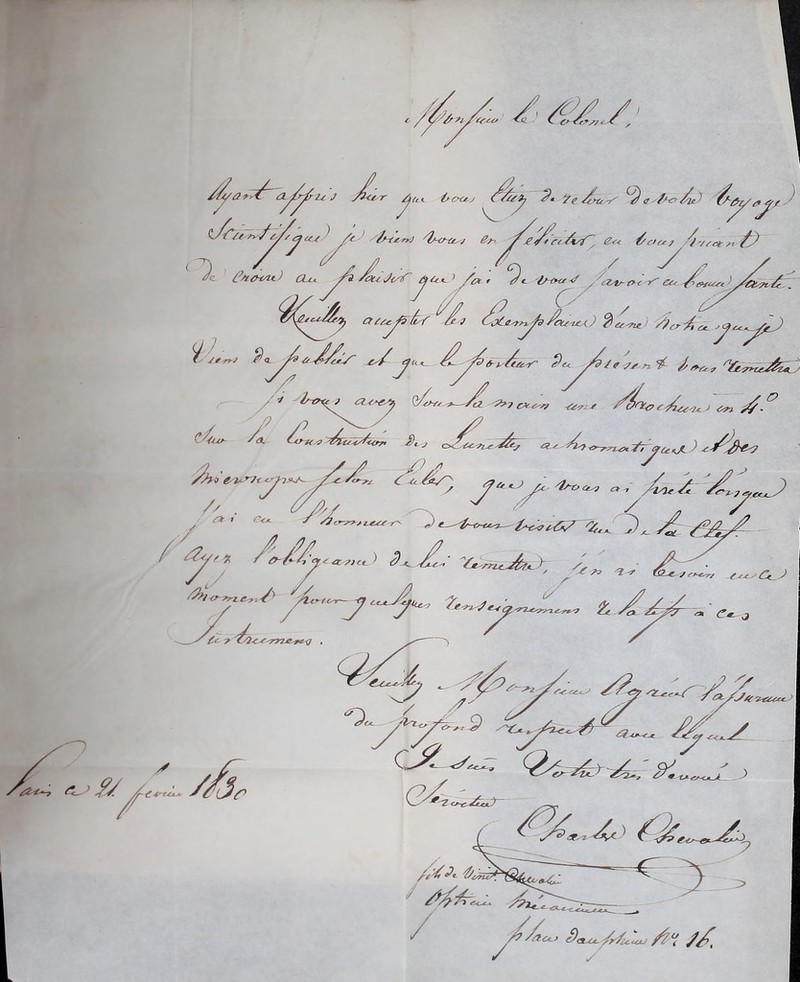 Monsieur le Colonel,
Ayant appris hier que vous Etiez de retour de votre voyage
Scientifique je viens vous en féliciter, en vous priant
de croire au plaisir que j'ai de vous savoir en bonne santé.
Veuillez accepter les Exemplaires d'une notice que je
Viens de publier et que le porteur du présent vous remettra
si vous avez sous la main une Brochure in 4.º
sur la Construction des Lunettes achromatiques et des
microscopes selon Euler, que je vous ai prêté lorsque
j'ai eu l'honneur de vous visiter rue de la Clef.
ayez l'obligeance de lui remettre, j'en ai besoin en ce
moment pour quelques renseignemens relatifs à ces
Instrumens.
Veuillez Monsieur Agréer l'assurance
du profond respect avec lequel
Je suis Votre très dévoué
Serviteur
Paris ce 21 fevrier 1830
Charles Chevalier
fils de Vinct. Chevalier
Opticien mécanicien
place dauphine Nº 16.